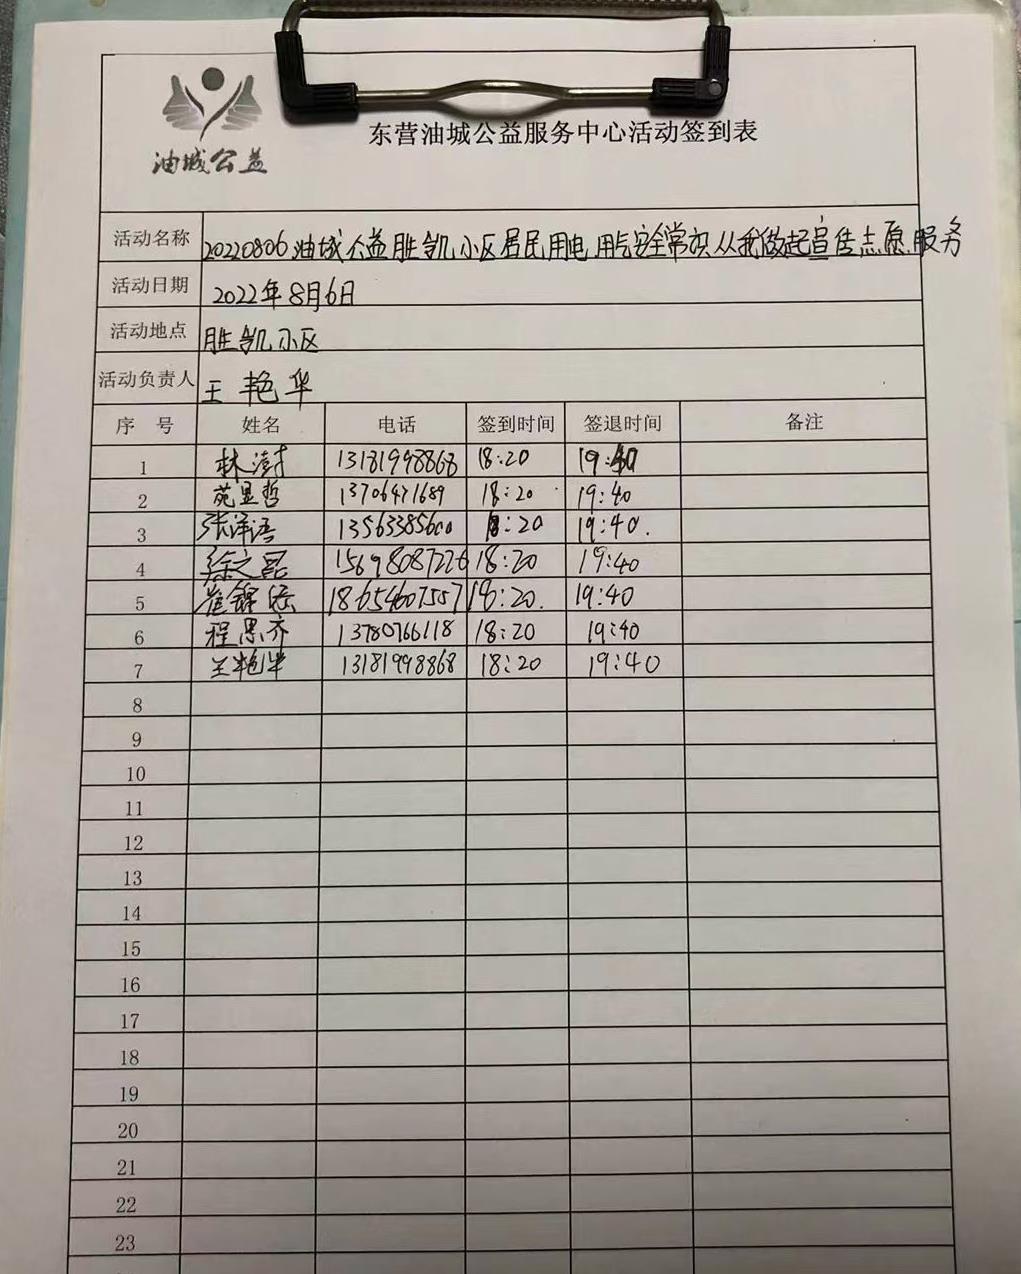 油城公益
东营油城公益服务中心活动签到表
活动名称 20220806油城公益胜凯小区居民用电用气安全常识从我做起宣传志愿服务
活动日期 2022年8月6日
活动地点 胜凯小区
活动负责人 王艳华
序号 姓名 电话 签到时间 签退时间 备注
1 林澍 13181998868 18:20 19:40
2 苑显哲 13706471689 18:20 19:40
3 张泽语 13563385600 18:20 19:40.
4 徐文 15698087226 18:20 19:40
5 崔锦 18654607557 18:20. 19:40
6 程思齐 13780766118 18:20 19:40
7 王艳华 13181998868 18:20 19:40
8
9
10
11
12
13
14
15
16
17
18
19
20
21
22
23